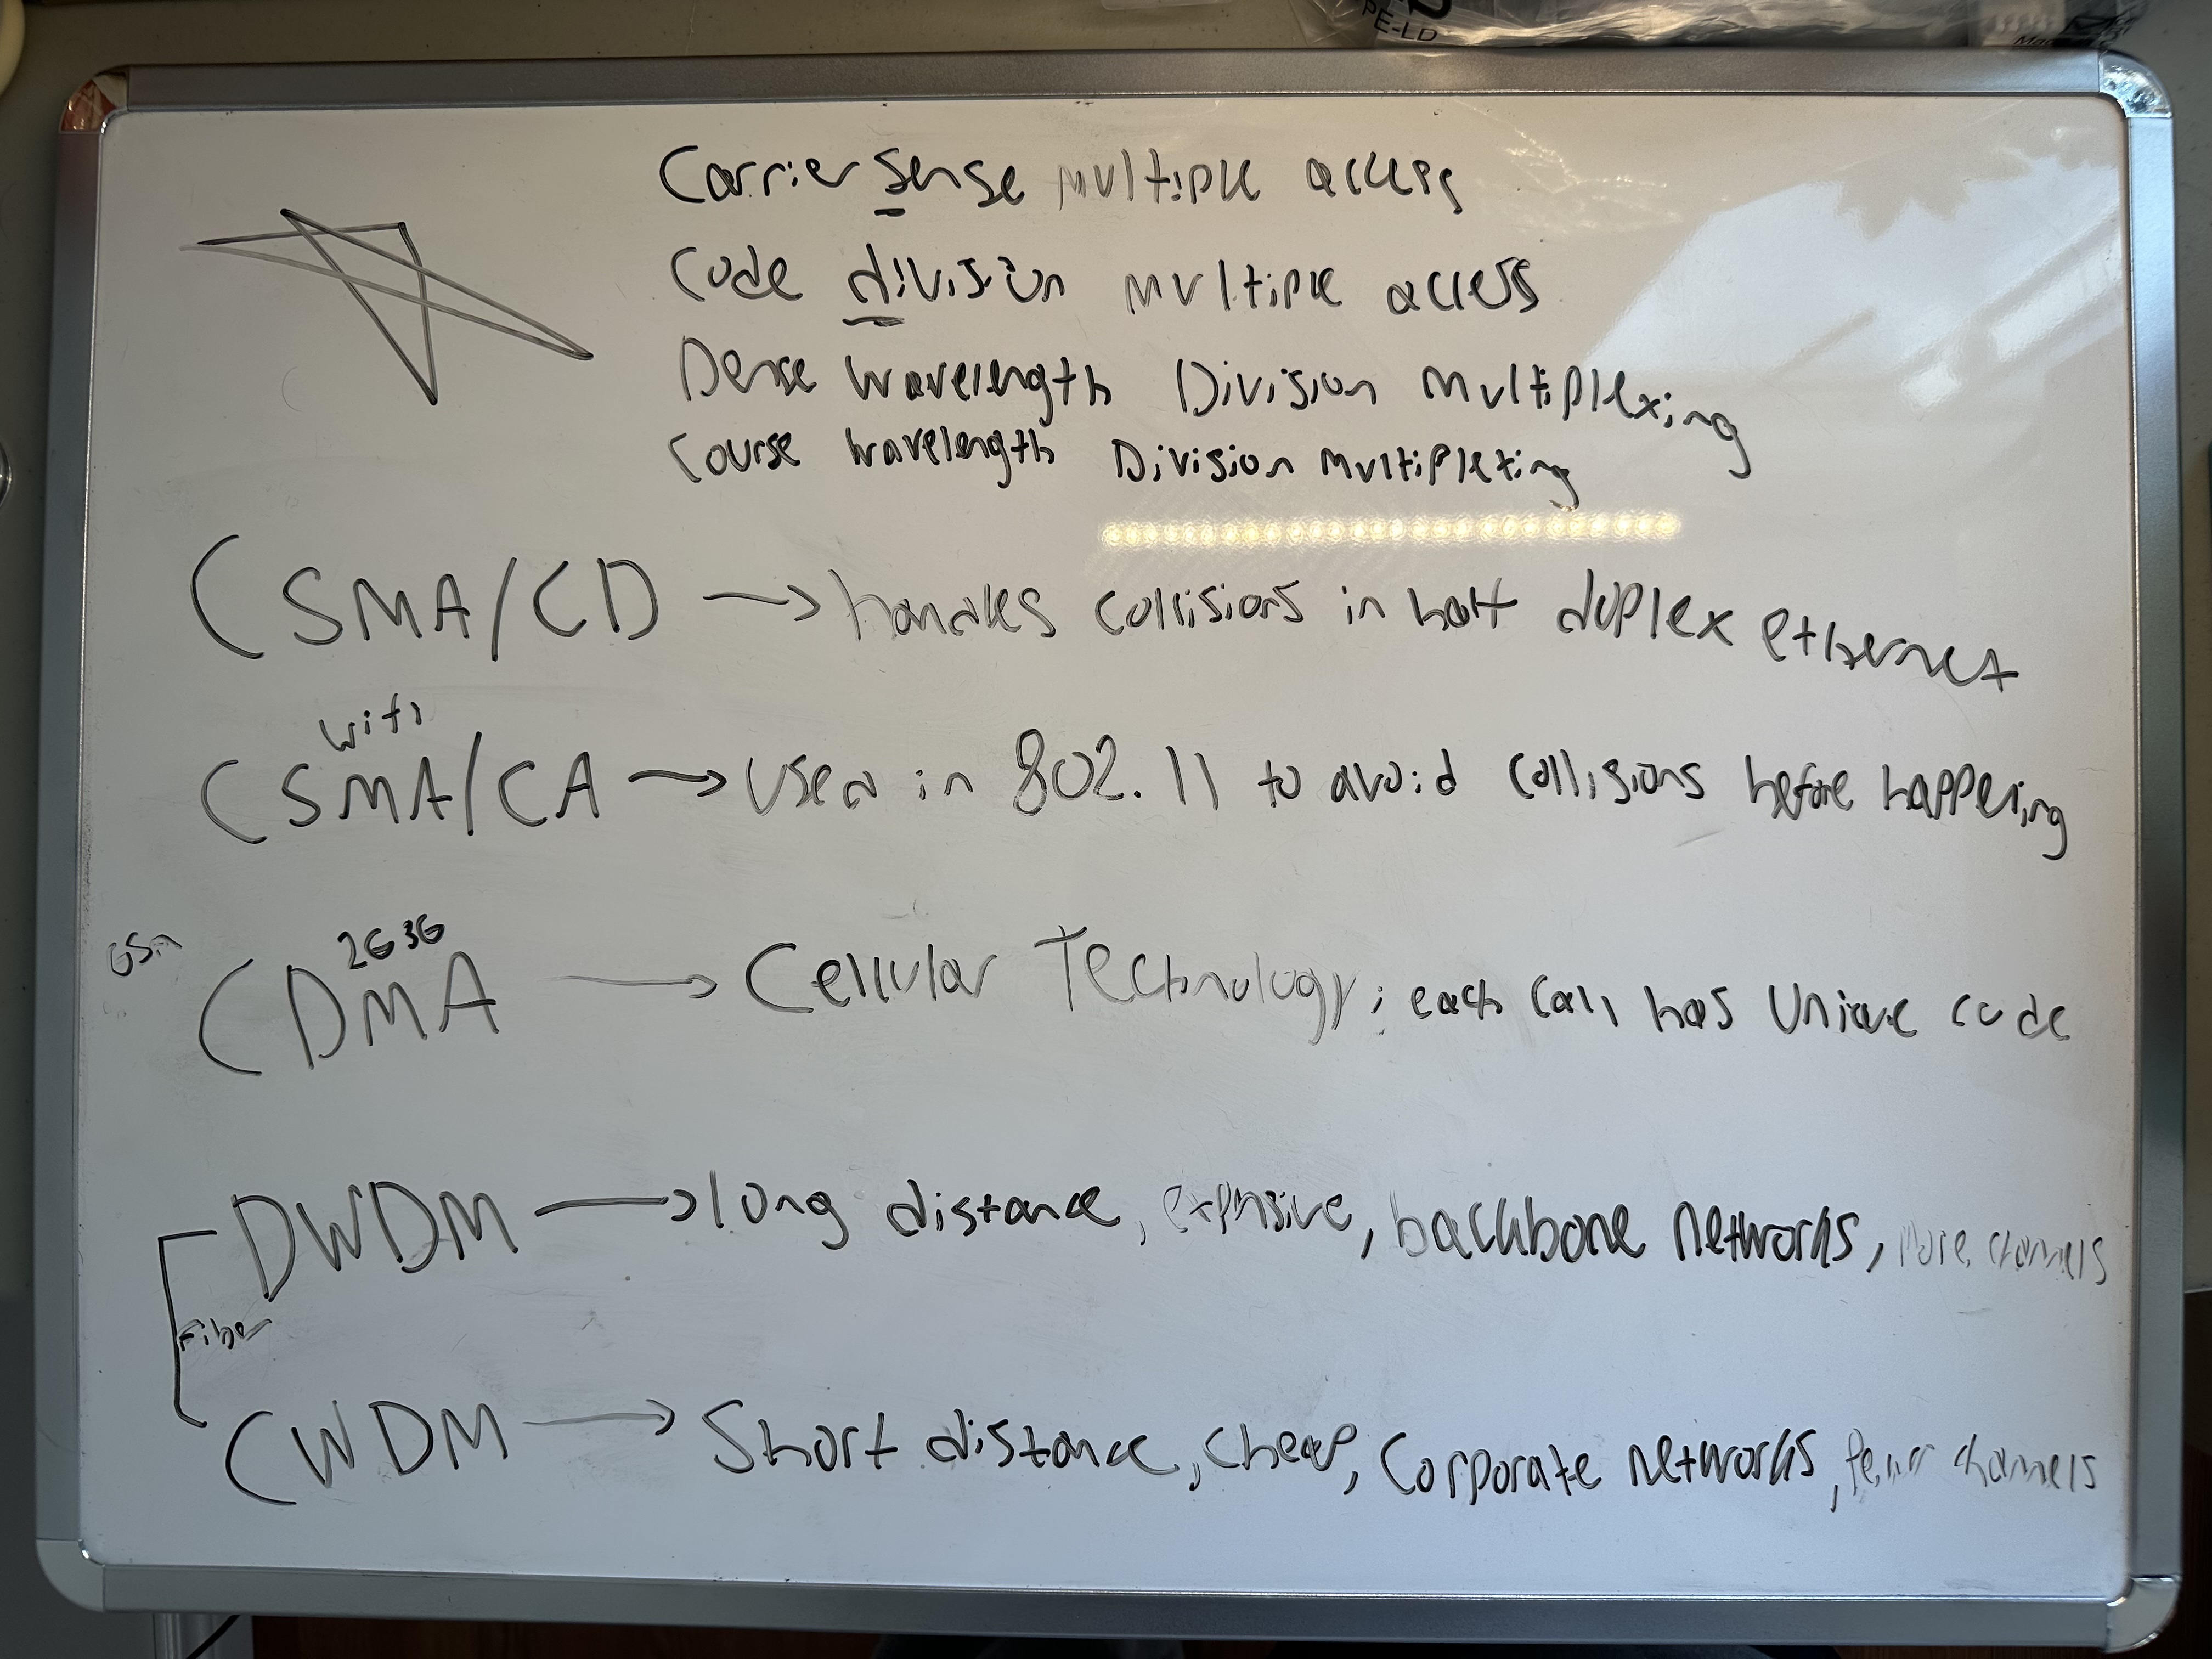 PE-LD
Carrier Sense Multiple access
Code division multiple access
Dense Wavelength Division Multiplexing
Course Wavelength Division Multiplexing
CSMA/CD → handles collisions in half duplex ethernet
wifi
CSMA/CA → Used in 802.11 to avoid collisions before happening
GSM
2G 3G
CDMA → Cellular Technology; each call has Unique code
DWDM → long distance, expensive, backbone networks, More channels
Fiber
CWDM → Short distance, cheap, Corporate networks, fewer channels